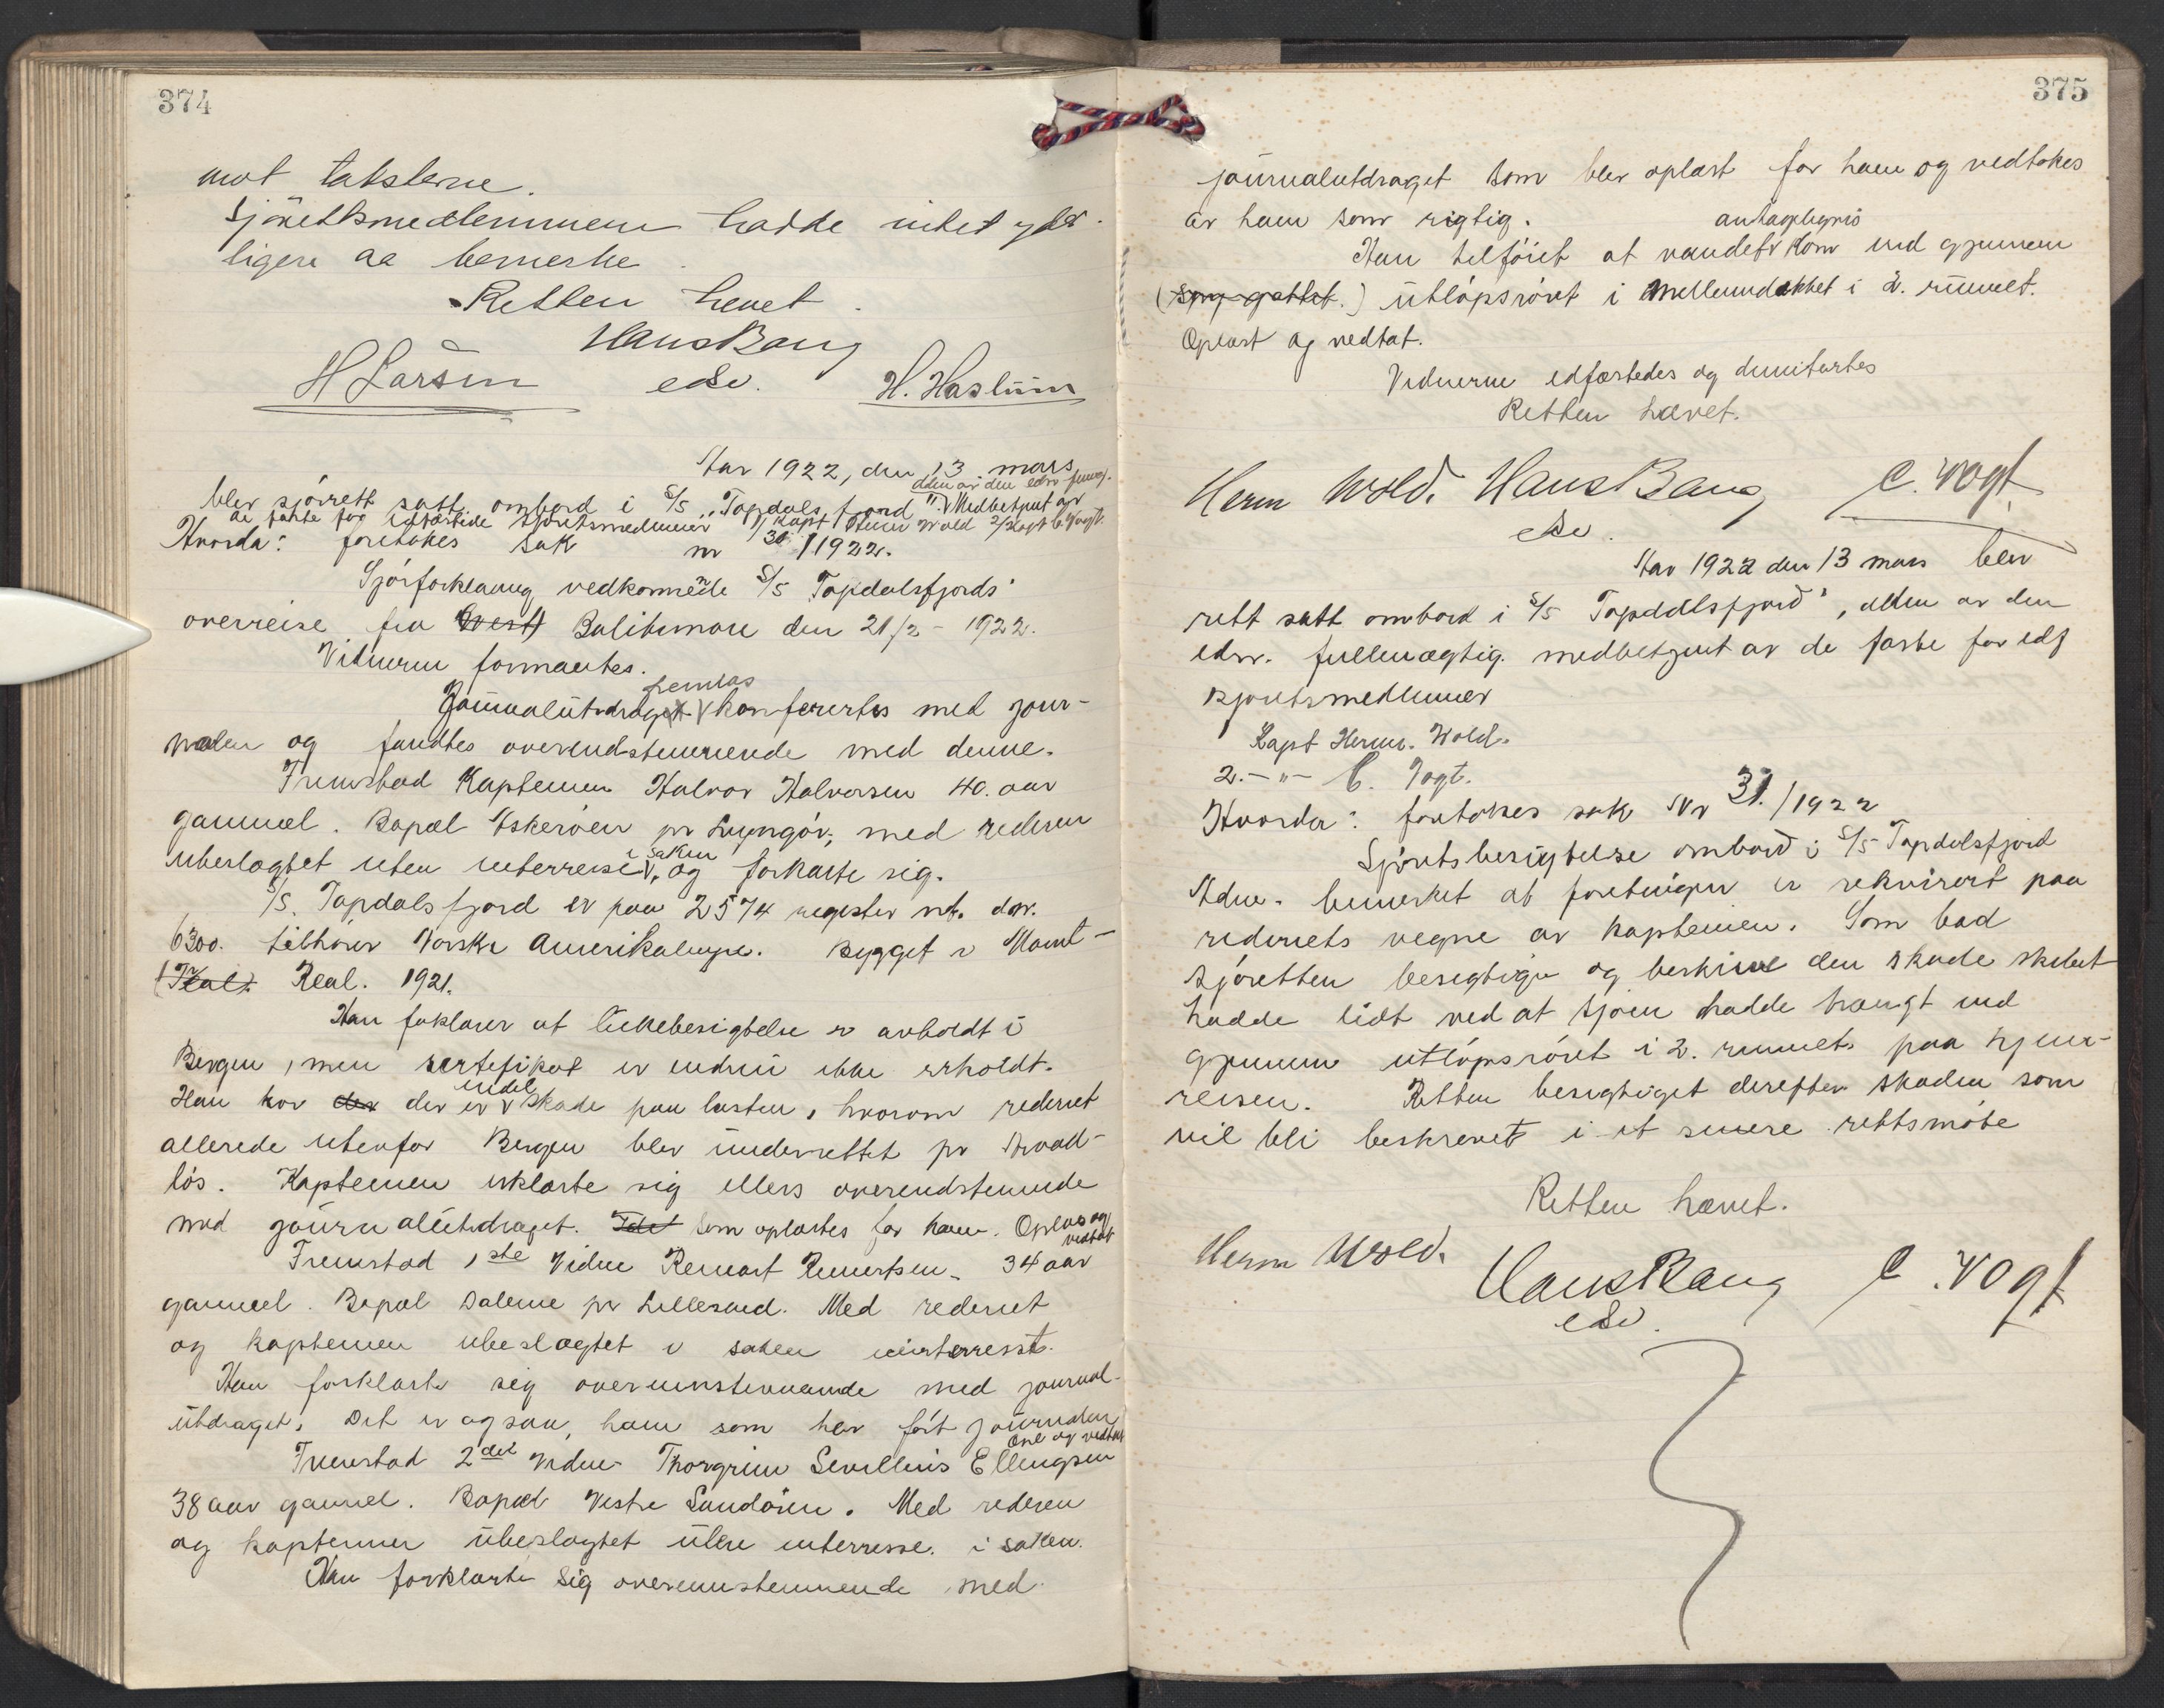 374
mot taksterne.
Sjörettsmedlemmene hadde intet yder-
ligere aa bemerke.
Retten hevet.
Hans Bang
H Larsen edsv. H. Haslum
Aar 1922, den 13 mars
blev sjörrett satt ombord i S/S "Tapdalsfjord" adm av den edsv fuldm. Medbetjent av
de faste for edfæstede sjöretsmedlemmer 1/ Kapt Herm Wold 2/ Kapt C. Vogt.
Hvorda: foretokes Sak nr 30 / 1922.
Sjörforklaring vedkommende S/S Tapdalsfjords
overreise fra (Vest) Baltimore den 21/2 - 1922.
Vidnerne formantes.
Journalutdraget fremlas konferertes med jour-
nalen og fandtes overendstemmende med denne.
Fremstod Kapteinen Halvor Halvorsen 40. aar
gammel. Bopæl Askeröen pr Lyngör, med rederen
ubeslegtet uten interesse i saken, og forklarte sig.
S/S. Tapdalsfjord er paa 2574 register nt. dw.
6300. tilhörer Norske Amerikalinje. Bygget i Mont-
(Real). Real. 1921.
Han forklarer at lukebesigtelse er avholdt i
Bergen, men sertefikat er endnu ikke erholdt.
Han tror der der er endel skade paa lasten, hvorom rederiet
allerede utenfor Bergen blev underrettet pr traad-
lös. Kapteinen erklærte sig ellers overendstemmende
med journalutdraget. Idet som oplæstes for ham. Oplæs og
vedtat
Fremstod 1ste Vidne Reinert Reinertsen. 34 aar
gammel. Bopæl Dalene pr Lillesand. Med rederiet
og kapteinen ubeslægtet i saken uinterressert.
Han forklarte sig overensstemmende med journal-
utdraget. Det er ogsaa, ham som har fört journalen
Opl og vedtat
Fremstod 2det vidne Thorgrim Severinus Ellingsen
38 aar gammel. Bopæl Vestre Sandöien. Med rederen
og kapteinen ubeslægtet uten interresse. i saken.
Han forklarte sig overensstemmende med
375
journalutdraget som blev oplæst for ham og vedtokes
av ham som rigtig.
Han tilföiet at vandet antageligvis kom ind gjennem
(spy-gattet.) utlöpsröret i mellemdekket i 2. rummet.
Oplæst og vedtat.
Vidnerne edfæstedes og dimitertes
Retten hævet.
Herm Wold. Hans Bang C. Vogt
edsv.
Aar 1922 den 13 mars blev
rett satt ombord i S/S Tapdalsfjord", adm av den
edsv. fullmægtig. medbetjent av de faste for edf
sjöretsmedlemmer
Kapt Herm. Wold.
2. - " - C. Vogt.
Hvorda: foretokes sak Nr 31. / 1922
Sjöretsbesigtelse ombord i S/S Tapdalsfjord
Adm. bemerket at forretningen er rekvirert paa
rederiets vegne av kapteinen. Som bad
sjöretten besegtige og beskrive den skade skibet
hadde lidt ved at sjöen hadde trængt ind
gjennem utlöpsröret i 2. rummet paa hjem-
reisen. Retten besigtiget derefter skaden som
vil bli beskrevet i et senere rettsmöte
Retten hævet.
Herm Wold. Hans Bang C. Vogt
edsv.